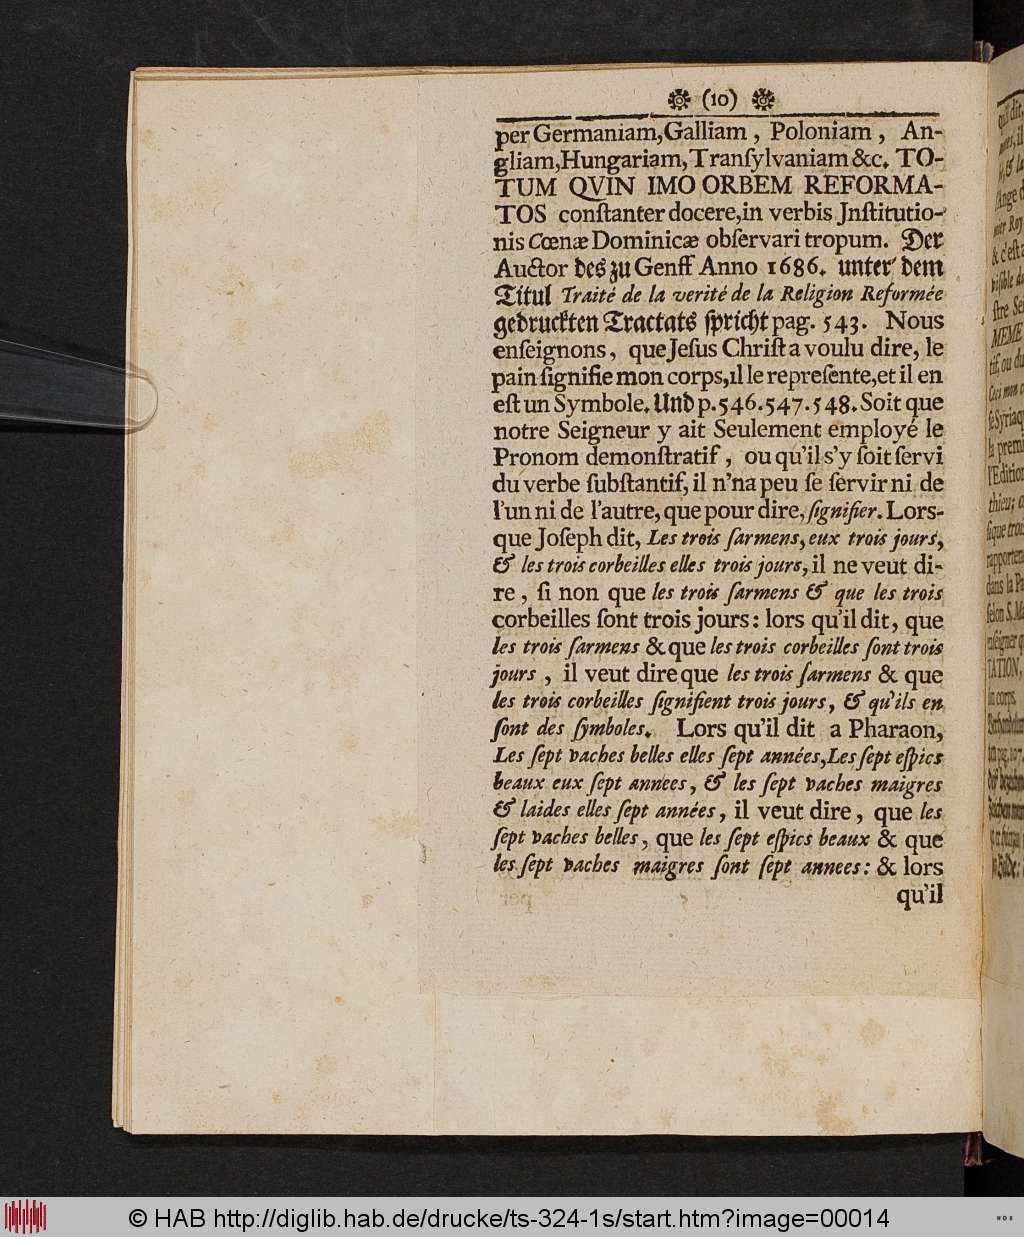 (10)
per Germaniam, Galliam, Poloniam, An-
gliam, Hungariam, Tranſylvaniam &c. TO-
TUM QVIN IMO ORBEM REFORMA-
TOS conſtanter docere, in verbis Jnſtitutio-
nis Cœnæ Dominicæ obſervari tropum. Der
Auctor des zu Genff Anno 1686. unter dem
Titul Traité de la verité de la Religion Reformée
gedruckten Tractats ſpricht pag. 543. Nous
enſeignons, que Jeſus Chriſt a voulu dire, le
pain ſignifie mon corps, il le repreſente, et il en
eſt un Symbole. Und p. 546. 547. 548. Soit que
notre Seigneur y ait Seulement employé le
Pronom demonſtratif, ou qu'il s'y ſoit ſervi
du verbe ſubſtantif, il n'na peu ſe ſervir ni de
l'un ni de l'autre, que pour dire, ſignifier. Lors-
que Joſeph dit, Les trois ſarmens, eux trois jours,
& les trois corbeilles elles trois jours, il ne veut di-
re, ſi non que les trois ſarmens & que les trois
corbeilles ſont trois jours: lors qu'il dit, que
les trois ſarmens & que les trois corbeilles ſont trois
jours, il veut dire que les trois ſarmens & que
les trois corbeilles ſignifient trois jours, & qu'ils en
ſont des ſymboles. Lors qu'il dit a Pharaon,
Les ſept vaches belles elles ſept années, Les ſept eſpics
beaux eux ſept annees, & les ſept vaches maigres
& laides elles ſept années, il veut dire, que les
ſept vaches belles, que les ſept eſpics beaux & que
les ſept vaches maigres ſont ſept annees: & lors
qu'il
© HAB http://diglib.hab.de/drucke/ts-324-1s/start.htm?image=00014